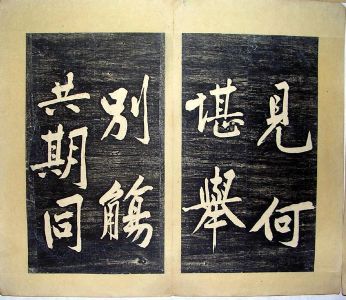 見何
堪舉
別觴
共期同